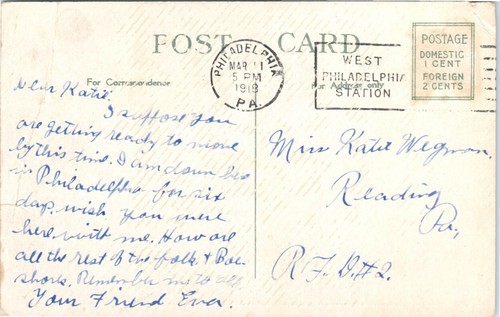 POST CARD
For Correspondence
For Address only
PHILADELPHIA
MAR 11
5 PM
1918
PA.
WEST
PHILADELPHIA
STATION
POSTAGE
DOMESTIC
1 CENT
FOREIGN
2 CENTS
Dear Katie.
I suppose you
are getting ready to move
by this time. I am down here
in Philadelphia for six
days. wish you were
here with me. How are
all the rest of the folk &
Remember me to all.
Your Friend Eva.
Miss Katie Wegman.
Reading
Pa,
R.F.D. #2.